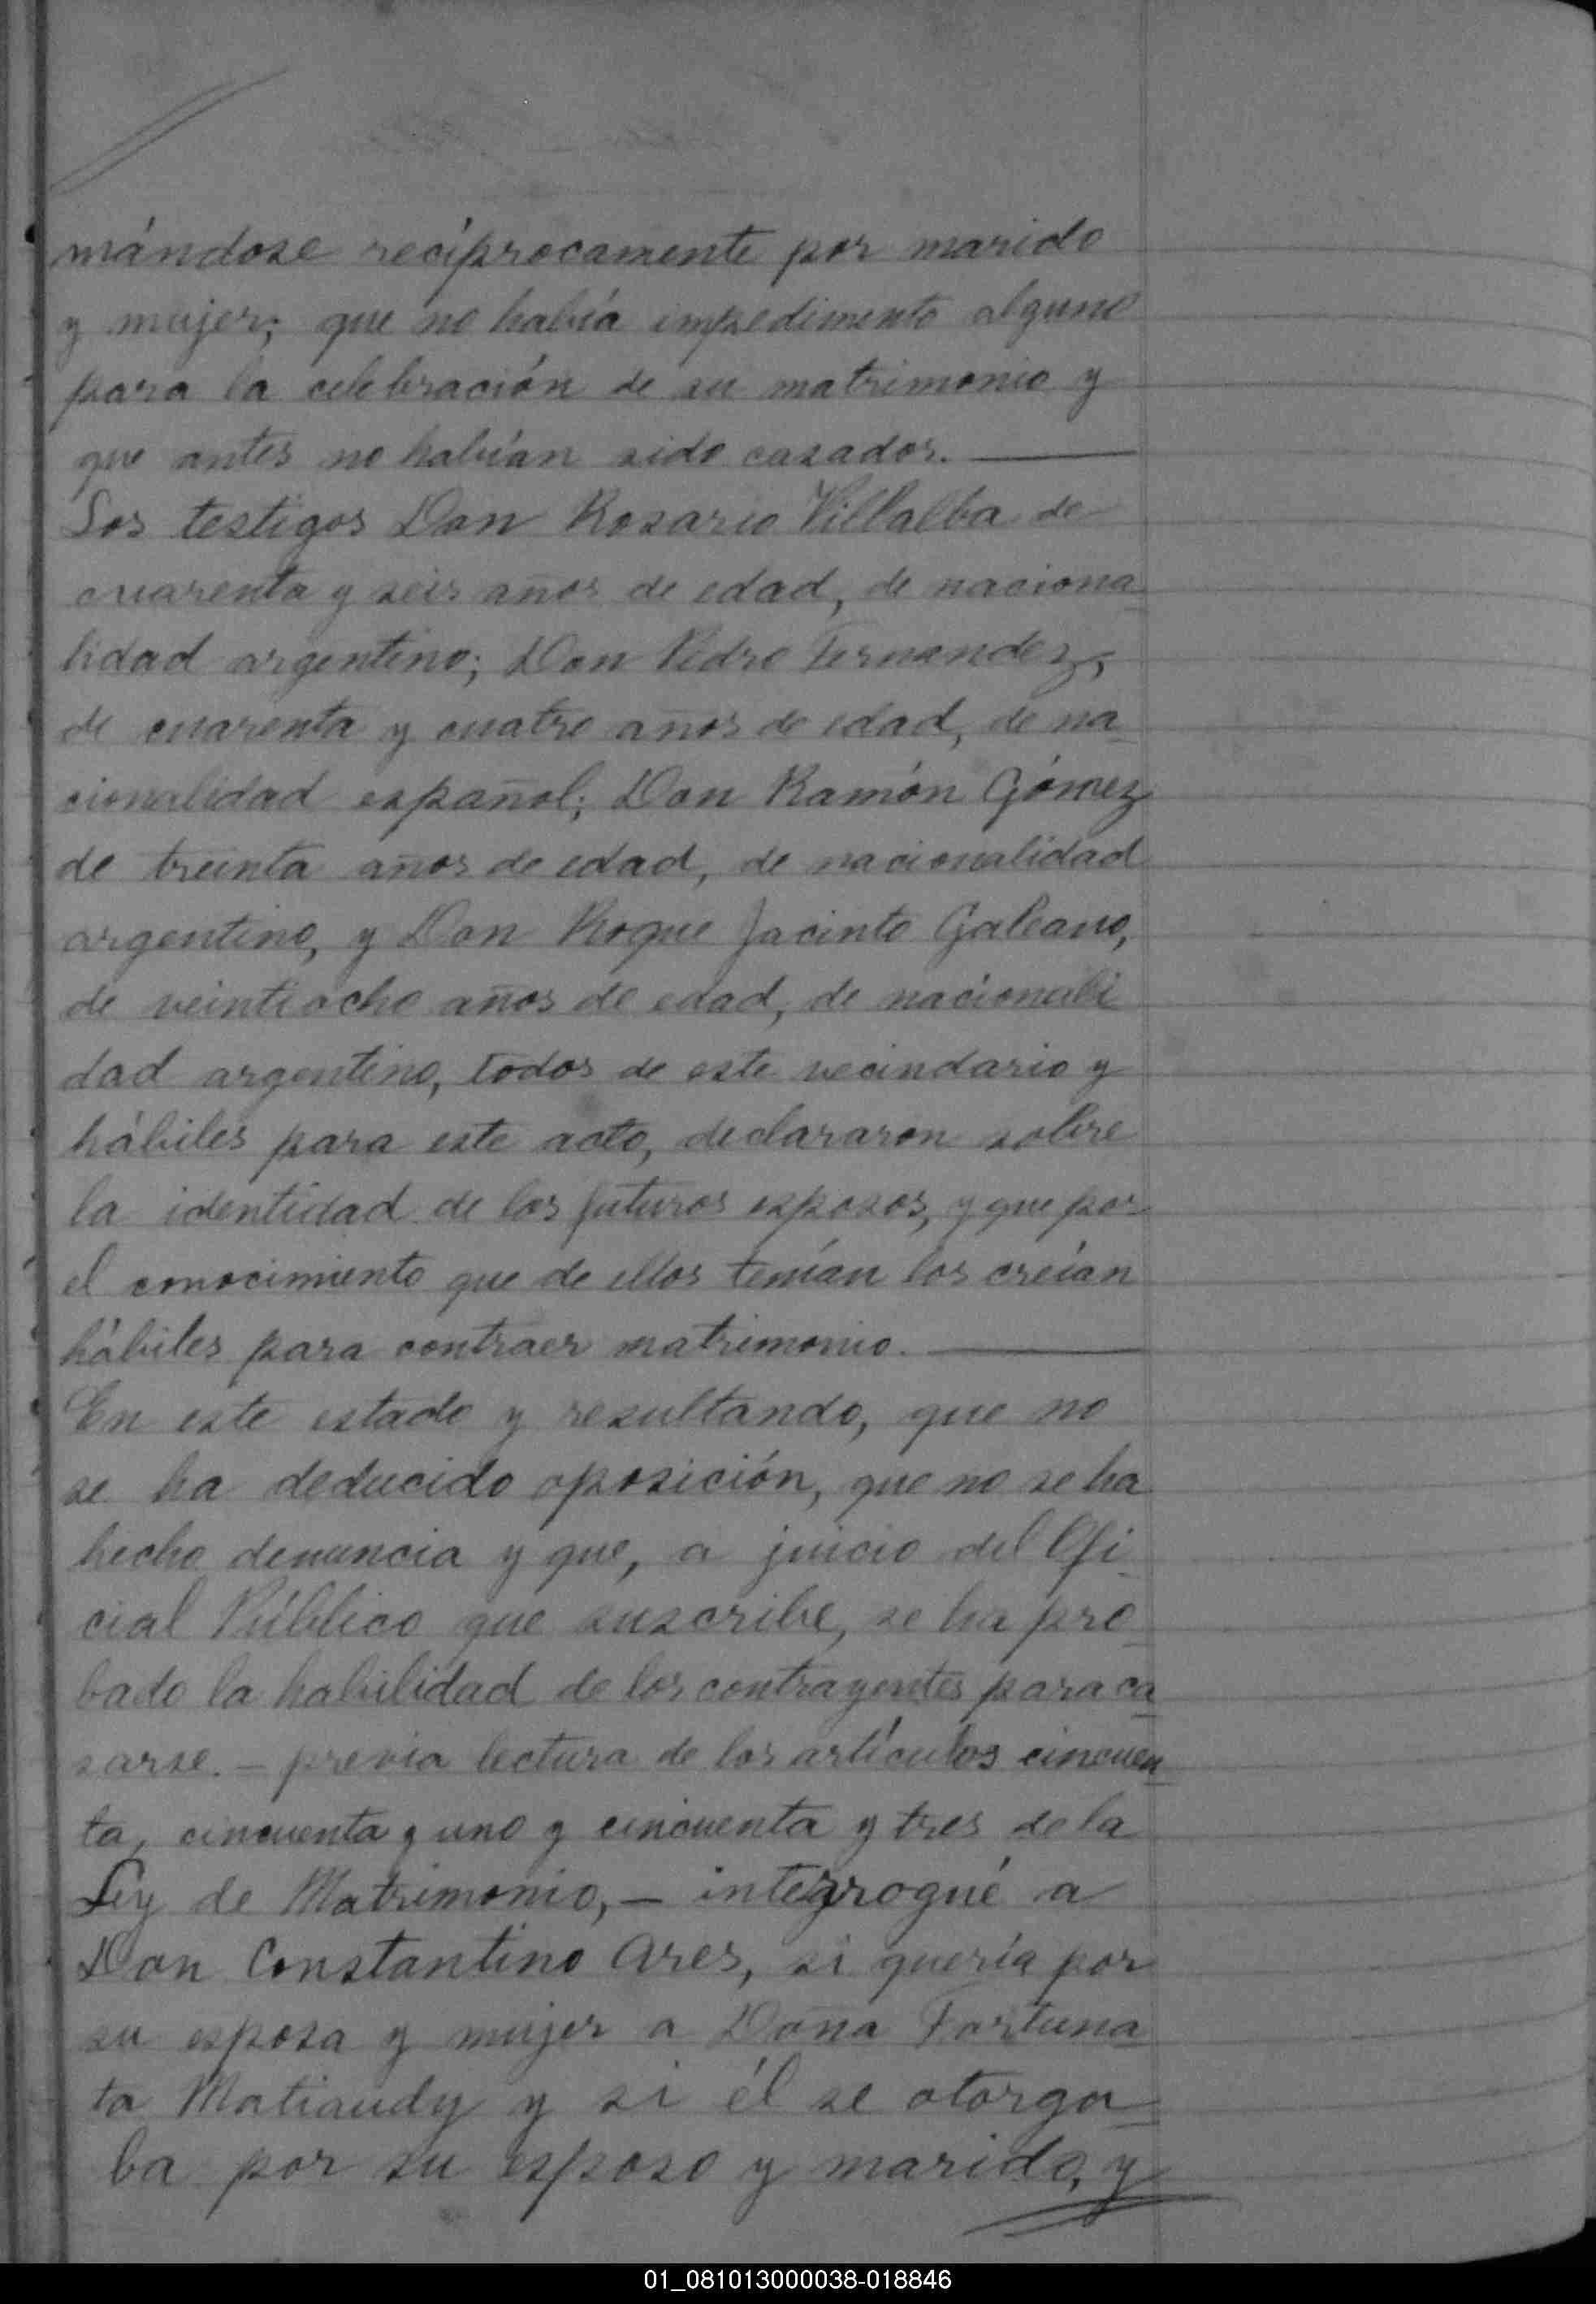 mándose recíprocamente por marido
y mujer; que no había impedimento alguno
para la celebración de su matrimonio y
que antes no habían sido casados. ———
Los testigos Don Rosario Villalba de
cuarenta y seis años de edad, de naciona
lidad argentino; Don Pedro Fernandez,
de cuarenta y cuatro años de edad, de na
cionalidad español; Don Ramón Gómez
de treinta años de edad, de nacionalidad
argentino, y Don Roque Jacinto Galeano,
de veintiocho años de edad, de nacionali
dad argentino, todos de este vecindario y
hábiles para este acto, declararon sobre
la identidad de los futuros esposos, y que por
el conocimiento que de ellos tenían los creían
hábiles para contraer matrimonio. ———
En este estado y resultando, que no
se ha deducido oposición, que no se ha
hecho denuncia y que, a juicio del Ofi
cial Público que suscribe, se ha pro
bado la habilidad de los contrayentes para ca
sarse. – previa lectura de los artículos cincuen
ta, cincuenta y uno y cincuenta y tres de la
Ley de Matrimonio, – interrogué a
Don Constantino Ares, si quería por
su esposa y mujer a Doña Fortuna
ta Matiaudy y si él se otorga
ba por su esposo y marido, y
01_081013000038-018846